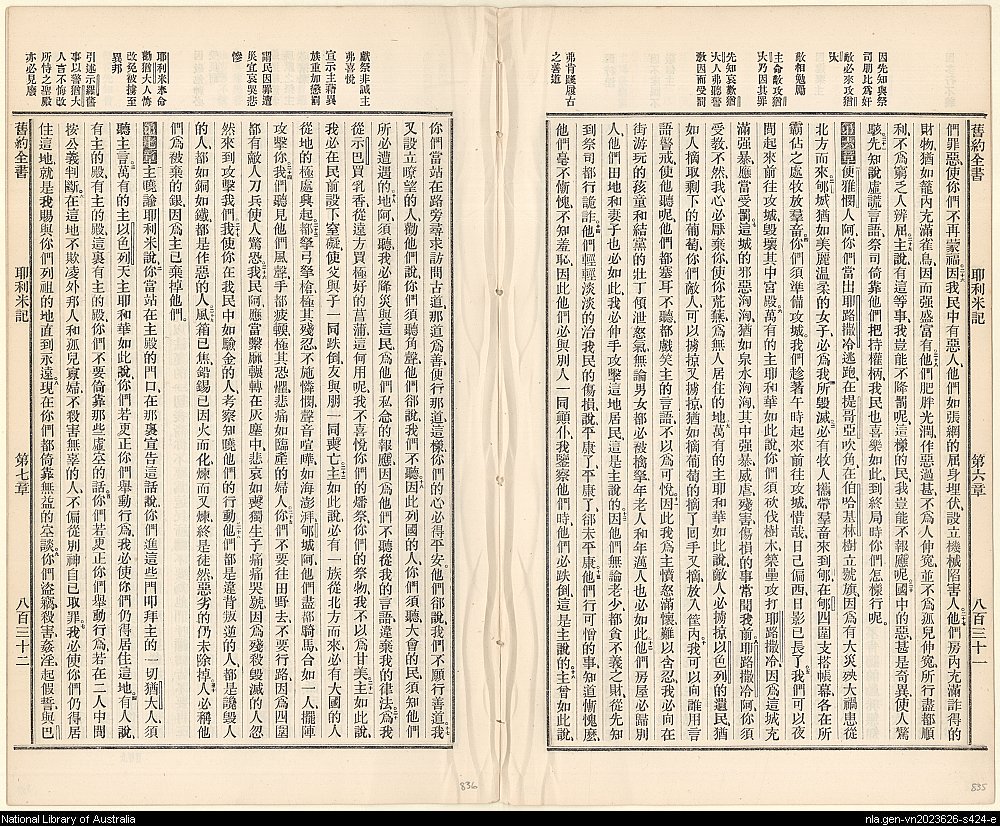 舊約全書 耶利米記 第六章 八百三十一
因先知與祭
司朋比爲奸
敵必來攻猶
大
敵相勉勵
主命敵攻猶
大乃因其罪
先知哀歎猶
大人弗聽警
教因而受罰
弗肯履厥古
之善道
們罪惡使你們不再蒙福因我民中有惡人他們如張網的屈身埋伏設立機檻陷害人他們房內充滿詐得的
財物猶如籠內充滿雀鳥因而強盛富有他們肥胖光潤作惡過甚不爲人伸寃並不爲孤兒伸寃所行盡都順
利不爲窮乏人辨屈主說有這等事我豈能不降罰呢這樣的民我豈能不報應呢國中的惡甚是奇異使人驚
駭先知說虛謊言語祭司倚靠他們把持權柄我民也喜樂如此到終局時你們怎樣行呢
第六章便雅憫人阿你們當出耶路撒冷逃跑在提哥亞吹角在伯哈基林樹立號旗因爲有大災殃大禍患從
北方而來郇城猶如美麗温柔的女子必爲我所毀滅必有牧人攜帶羣畜來到郇在郇四圍支搭帳幕各在所
霸佔之處牧放羣畜你們須準備攻城我們趁著午時起來前往攻城惜哉日已偏西日影已長了我們可以夜
間起來前往攻城毀壞其中宮殿萬有的主耶和華如此說你們須砍伐樹木築壘攻打耶路撒冷因爲這城充
滿強暴應當受罰這城的邪惡洶洶猶如泉水洶洶其中強暴威虐殘害傷損的事常聞我前耶路撒冷阿你須
受教不然我心必厭棄你使你荒蕪爲無人居住的地萬有的主耶和華如此說敵人必擄掠以色列的遺民猶
如人摘取剩下的葡萄你們敵人可以擄掠又擄掠猶如摘葡萄的摘了囘手又摘放入筐內我可以向誰用言
語警戒他們都塞耳不聽都戲笑主的言語不以爲可悦因此我爲主憤怒滿懷難以含忍我必向在
街游玩的孩童和結黨的壯丁傾泄怒氣無論男女都必被擒拏年老人和年邁人也必如此他們房屋必歸別
人他們田地和妻子也必如此我必伸手攻擊這地居民這是主說的因他們無論老少都貪不義之財從先知
到祭司都行詭詐他們輕輕淡淡的治我民的傷損說平康了平康了卻未平康他們行可憎的事知道慚愧麽
他們毫不慚愧不知羞恥因此他們必與別人一同顚仆我鑒察他們時他們必跌倒這是主說的主曾如此說
你們當站在路旁尋求訪問古道那道爲善便行那道這樣你們的心必得平安他們卻說我們不願行善道我
又設立瞭望的人勸他們說你們須聽角聲他們卻說我們不聽因此列國的人你們須聽大會的民須知他們
所必遭遇的地阿須聽我必降災與這民爲他們私念的報應因爲他們不聽從我的言語違棄我的律法爲我
從示巴買乳香從遠方買極好的菖蒲這何用呢我不喜悦你們的燔祭你們的祭物我不以爲甘美主如此說
我必在民前設下窒礙使父與子一同跌倒友與朋一同喪亡主如此說必有一族從北方而來必有大國的人
從地的極處興起都拏弓拏槍極其殘忍不施憐憫聲音喧嘩如海澎湃郇城阿他們盡都騎馬合如一人擺陣
攻擊你我們聽見他們風聲手都疲輭極其恐懼悲痛如臨產的婦人你們不要往田野去不要行路因爲四圍
都有敵人刀兵使人驚恐我民阿應當繫麻輾轉在灰塵中悲哀如喪獨生子痛痛哭號因爲殘殺毀滅的人忽
然來到攻擊我們我使你在我民中如驗金的人考察知曉他們的行動他們都是違背叛逆的人都是讒毀人
的人都如銅如鐵都是作惡的人風箱已焦鉛錫已因火而化煉而又煉終是徒然惡劣的仍未除掉人必稱他
們爲被棄的銀因爲主已棄掉他們
第七章主曉諭耶利米說你當站在主殿的門口在那裏宣告這話說你們進這些門叩拜主的一切猶大人須
聽主言萬有的主以色列天主耶和華如此說你們若更正你們舉動行爲我必使你們仍得居住這地有人說
有主的殿有主的殿這裏有主的殿你們不要倚靠那些虛空的話你們若更正你們舉動行爲若在二人中間
按公義判斷在這地不欺凌外邦人和孤兒寡婦不殺害無辜的人不偏從別神自己取罪我必使你們仍得居
住這地就是我賜與你們列祖的地直到永遠現在你們都倚靠無益的空談你們盜竊殺害姦淫起假誓與巴
獻祭非誠主
弗喜悦
宣示主藉異
族重加懲罰
謂民因罪遭
災宜哀哭悲
慘
耶利米奉命
勸猶大人悔
改免被擄至
異邦
引述示羅舊
事以警猶大
人言不悔改
所恃之聖殿
亦必見廢
舊約全書 耶利米記 第七章 八百三十二
836
835
National Library of Australia
nla.gen-vn2023626-s424-e